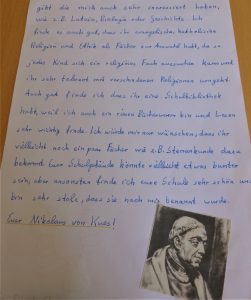 gibt die mich auch sehr interessiert haben,
wie z.B. Latein, Biologie oder Geschichte. Ich
finde es auch gut, dass ihr evangelische, katholische
Religion und Ethik als Fächer zur Auswahl habt, da so
jedes Kind sich ein religiöses Fach aussuchen kann und
ihr sehr tolerant mit verschiedenen Religionen umgeht.
Auch gut finde ich, dass ihr eine Schulbibliothek
habt, weil ich auch ein riesen Bücherwurm bin und Lesen
sehr wichtig finde. Ich würde mir nur wünschen, dass ihr
vielleicht noch ein paar Fächer wie z.B. Sternenkunde dazu
bekommt. Euer Schulgebäude könnte vielleicht etwas bunter
sein, aber ansonsten finde ich eure Schule sehr schön und
bin sehr stolz, dass sie nach mir benannt wurde.
Euer Nikolaus von Kues!